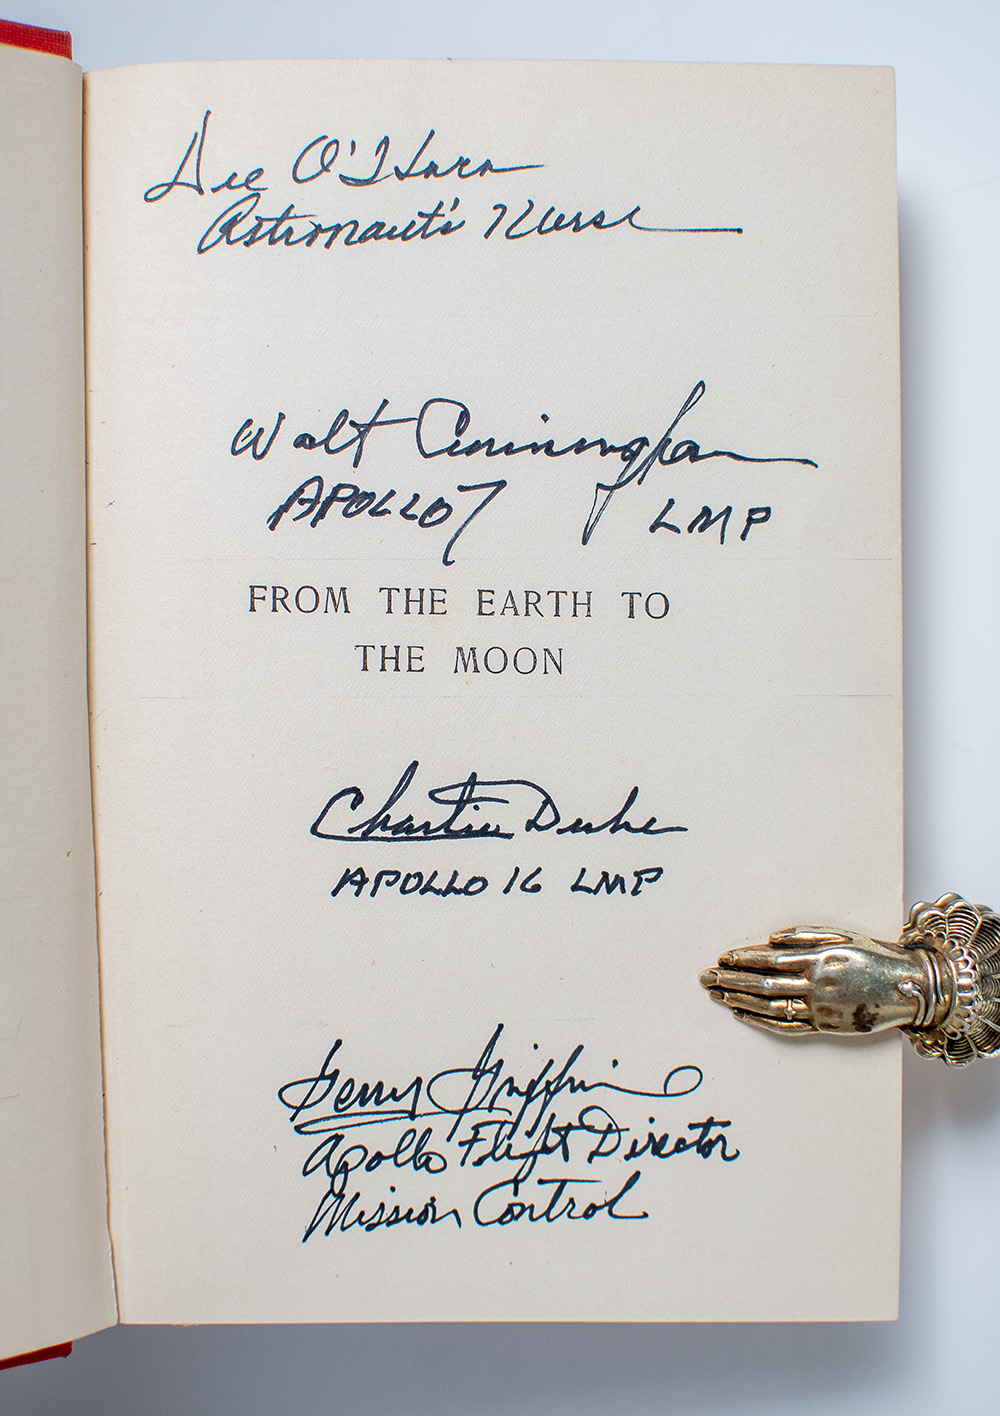 Dee O'Hara
Astronaut's Nurse
Walt Cunningham
APOLLO 7 LMP
FROM THE EARTH TO
THE MOON
Charlie Duke
APOLLO 16 LMP
Gerry Griffin
Apollo Flight Director
Mission Control